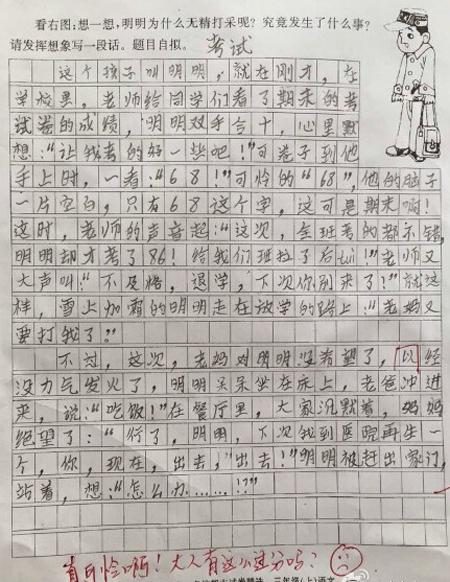 看右图:想一想,明明为什么无精打采呢?究竟发生了什么事?
请发挥想象写一段话。题目自拟。 考试
这个孩子叫明明,就在刚才,在
学校里,老师给同学们看了期末的考
试卷的成绩,明明双手合十,心里默
想:“让我考的好一些吧!”可卷子到他
手上时,一看:“68!”可怜的“68”,他的脑子
一片空白,只有68这个字,这可是期末啊!
这时,老师的声音起:“这次,全班考的都不错,
明明却才考了86!给我们班拉了后tuǐ!”老师又
大声叫:“不及格,退学,下次你别来了!”就这
样,雪上加霜的明明走在放学的路上:“老妈又
要打我了?”
不过,这次,老妈对明明没希望了,以经
没力气发火了,明明呆呆坐在床上,老爸冲进
来,说:“吃饭!”在餐厅里,大家沉默着,妈妈
绝望了:“行了,明明,下次我到医院再生一
个,你,现在,出去,”出去!”明明被赶出家门,
站着,想:“怎么办……!?”
真可怜啊!大人有这么过分吗?
三年级(上)语文